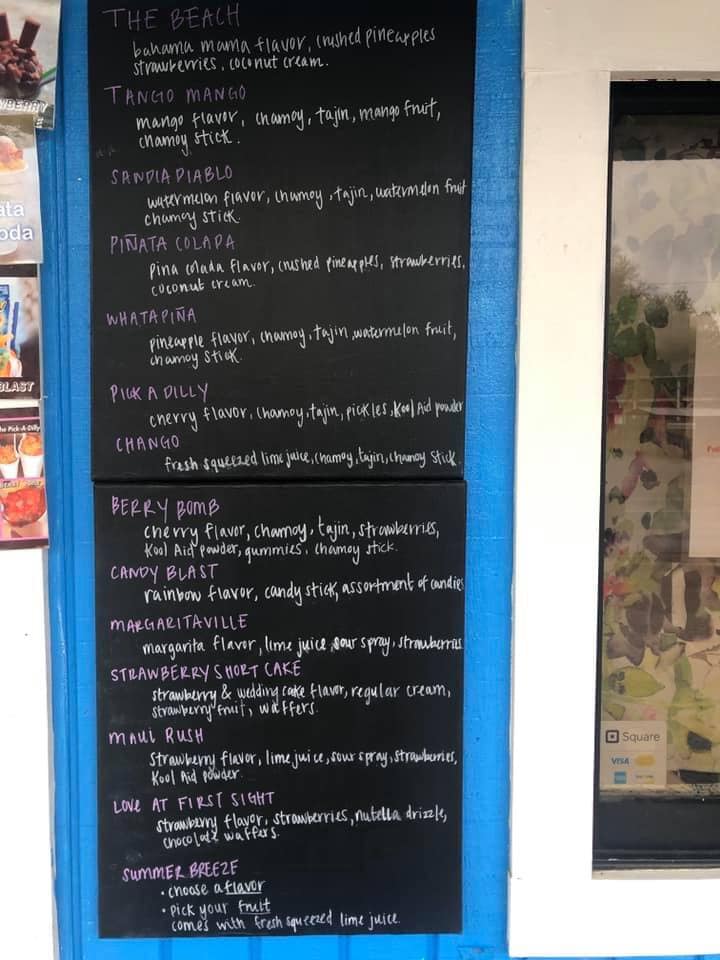 THE BEACH
bahama mama flavor, crushed pineapples
strawberries, coconut cream.
TANGO MANGO
mango flavor, chamoy, tajin, mango fruit,
chamoy stick.
SANDIA DIABLO
watermelon flavor, chamoy, tajin, watermelon fruit
chamoy stick.
PIÑATA COLADA
pina colada flavor, crushed pineapples, strawberries,
coconut cream.
WHATAPIÑA
pineapple flavor, chamoy, tajin, watermelon fruit,
chamoy stick.
PICK A DILLY
cherry flavor, chamoy, tajin, pickles, Kool Aid powder
CHANGO
fresh squeezed lime juice, chamoy, tajin, chamoy stick.
BERRY BOMB
cherry flavor, chamoy, tajin, strawberries,
Kool Aid powder, gummies, chamoy stick.
CANDY BLAST
rainbow flavor, candy stick, assortment of candies
MARGARITAVILLE
margarita flavor, lime juice, sour spray, strawberries
STRAWBERRY SHORT CAKE
strawberry & wedding cake flavor, regular cream,
strawberry fruit, waffers.
MAUI RUSH
Strawberry flavor, lime juice, sour spray, strawberries,
Kool Aid powder.
LOVE AT FIRST SIGHT
strawberry flavor, strawberries, nutella drizzle,
chocolate waffers.
SUMMER BREEZE
• choose a flavor
• pick your fruit
comes with fresh squeezed lime juice.
BLAST
The Pick-A-Dilly
Square
VISA